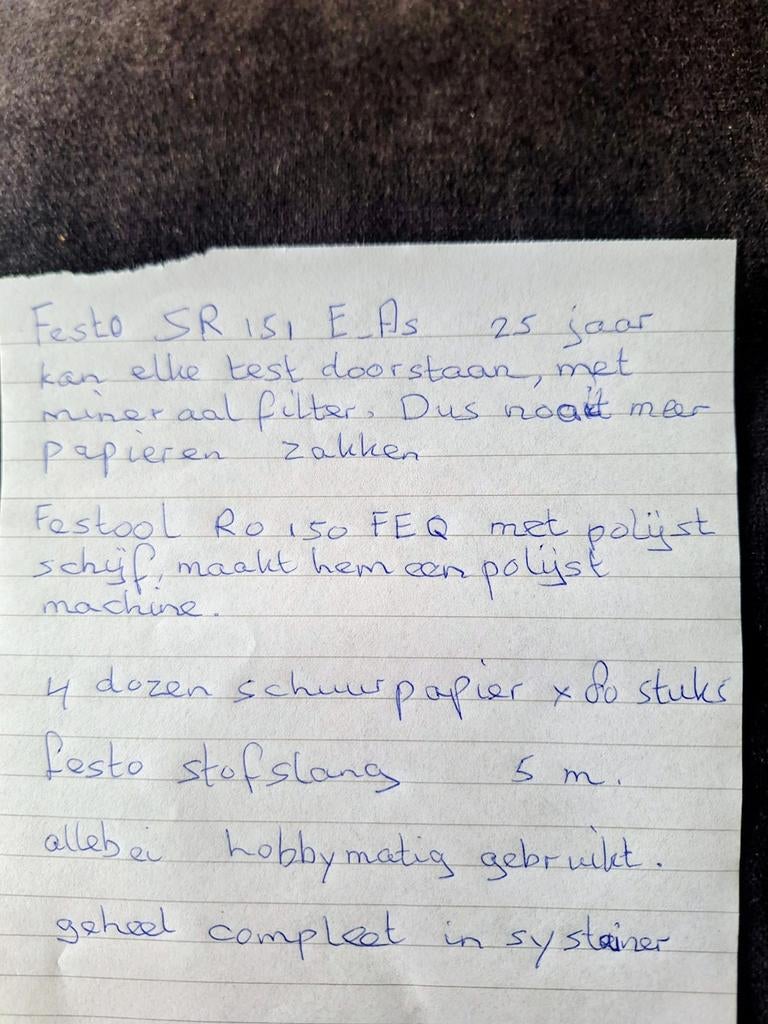 Festo SR 151 E-As 25 jaar
kan elke test doorstaan, met
mineraal filter. Dus nooit meer
papieren zakken
Festool Ro 150 FEQ met polijst
schijf, maakt hem een polijst
machine.
4 dozen schuurpapier x 80 stuks
festo stofslang 5 m.
allebei hobbymatig gebruikt.
geheel compleet in systainer